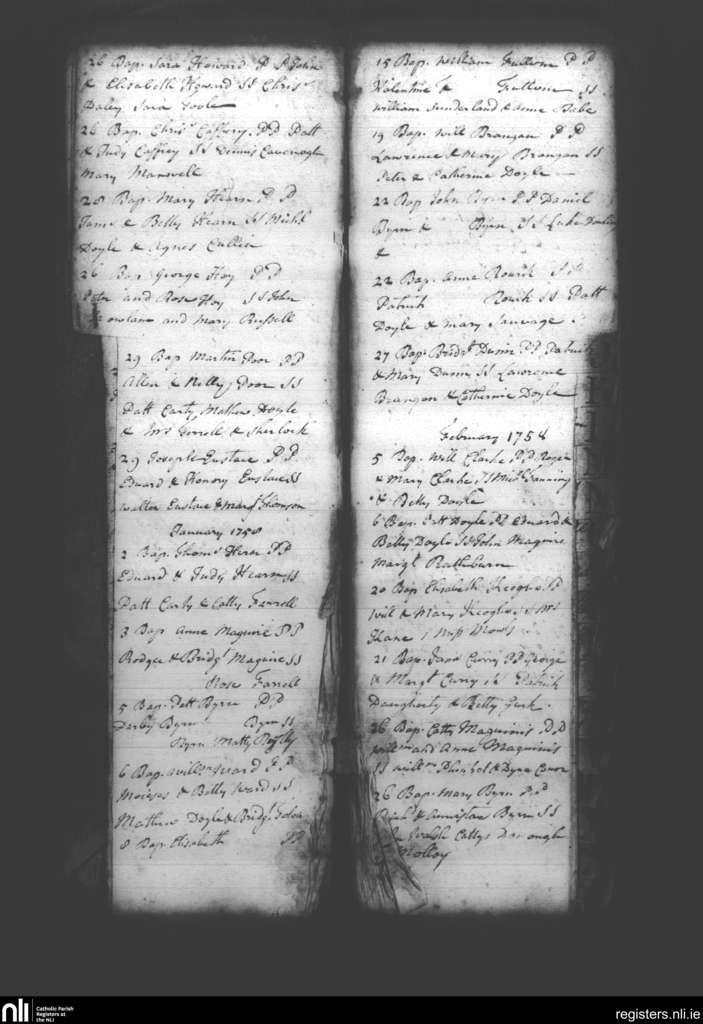 26 Bap. Sara Howard P P John
& Elisabeth Howard SS Chrisr
Daley Sara Toole
26 Bap. Chrisr Caffery. PP Patt
& Judy Caffrey SS Dennis Cavenogh
Mary Manswell
28 Bap. Mary Hearn P P
James & Betty Hearn SS Michl
Doyle & Agnes Cullin
26 Bap George Hoy PP
Peter and Rose Hoy SS John
and Mary Russell
29 Bap Martin Poor PP
Allen & Nelly Poor SS
Patt Carty Mathew Doyle
& Mrs Ferroll & Sherlock
29 Joseph Eustace P P
Edward & Honory Eustace SS
Walter Eustace & Mary Thomson
January 1758
2 Bap. Thoms Heren PP
Edward & Judy Hearn SS
Patt Carty & Catty Farrell
3 Bap Anne Maguire PP
Rodger & Bridgt Maguire SS
Rose Farrell
5 Bap. Patt Byrn PP
Derby Byrn Byrn SS
Byrn Matty Reylly
6 Bap. Willm Ward P P
Moieses & Betty Ward SS
Mathew Doyle & Bridgt
8 Bap. Elisabeth PP
15 Bap. William P P
Valentine & SS
William Sunderland & Anne
19 Bap. Will Brangan P P
Lawrence & Mary Brangan SS
Peter & Catherine Doyle
22 Bap John Byrn PP Daniel
Byrn & Byrn SS Luke
&
22 Bap. Anne Rourk
Patrick Rourk SS Patt
Doyle & Mary Sauvage
27 Bap. Bridgt Dunn PP Patrick
& Mary Dunn SS Lawrence
Brangan & Catherine Doyle
February 1758
5 Bap. Will Clarke PP Roger
& Mary Clarke SS Michl Fanning
& Betty Doyle
6 Bap. Patt Doyle PP Edward &
Betty Doyle SS John Maguire
Margt Rathburn
20 Bap Elisabeth Keoghoe PP
Will & Mary Keoghoe
21 Bap. Curry PP George
& Margt Curry SS Patrick
Daugherty & Betty
26 Bap. Catty Maguinis PP
Willm and Anne Maguinis
SS Willm
26 Bap. Mary Byrn PP
Byrn SS
Molloy
nli
Catholic Parish
Registers at
the NLI
registers.nli.ie